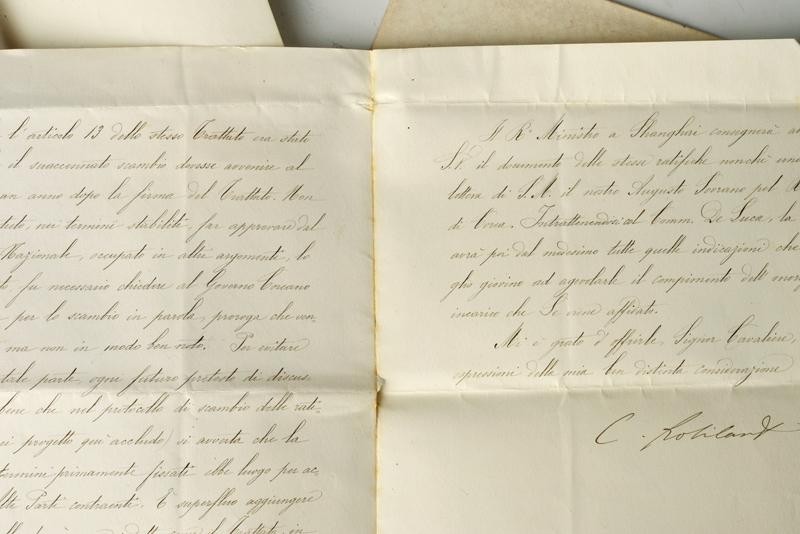 l'articolo 13 dello stesso Trattato era stato
il suaccennato scambio dovesse avvenire al
un anno dopo la firma del Trattato. Non
nei termini stabiliti, far approvare dal
Nazionale, occupato in altri argomenti, lo
fu necessario chiedere al Governo Coreano
per lo scambio in parola, proroga che ven-
ma non in modo ben noto. Per evitare
tale parte, ogni futuro pretesto di discus-
bene che nel protocollo di scambio delle rati-
progetto qui accluso) si avverta che la
termini primamente fissati ebbe luogo per ac-
Parti contraenti. È superfluo aggiungere
il Trattato, in
Il R. Ministro a Shanghai consegnerà a
S.V. il documento delle stesse ratifiche nonchè una
lettera di S.M. il nostro Augusto Sovrano pel
di Corea. Intrattenendosi col Comm. De Luca, la
avrà poi dal medesimo tutte quelle indicazioni che
gho giovino ad agevolarle il compimento dell'
incarico che Le venne affidato.
Mi è grato d'offrirle, Signor Cavaliere,
espressioni della mia ben distinta considerazione
C. Robilant